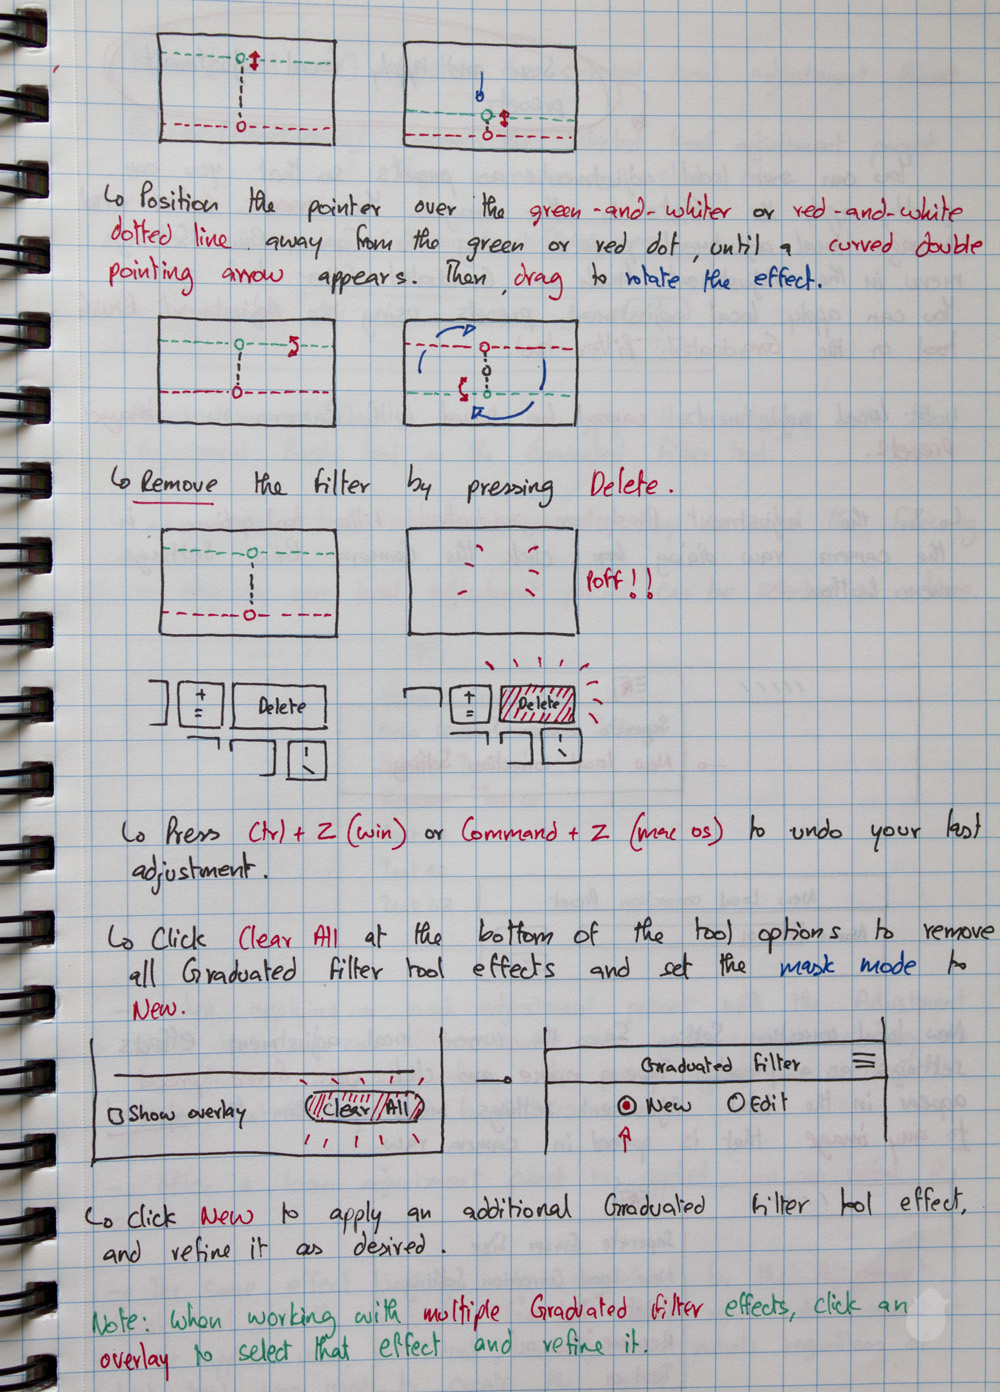 ↳ Position the pointer over the green-and-whiter or red-and-white
dotted line away from the green or red dot, until a curved double
pointing arrow appears. Then, drag to rotate the effect.
↳ Remove the filter by pressing Delete.
Poff!!
+
=
Delete
+
=
Delete
↳ Press Ctrl + Z (win) or Command + Z (mac os) to undo your last
adjustment.
↳ Click Clear All at the bottom of the tool options to remove
all Graduated filter tool effects and set the mask mode to
New.
Show overlay
Clear All
Graduated filter
New
Edit
↳ Click New to apply an additional Graduated filter tool effect,
and refine it as desired.
Note: when working with multiple Graduated filter effects, click an
overlay to select that effect and refine it.